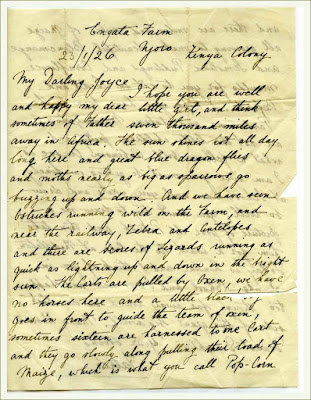 Engata Farm
Njoro Kenya Colony
23/1/26
My Darling Joyce
I hope you are well
and happy my dear little girl, and think
sometimes of Father seven thousand miles
away in Africa. The sun shines hot all day
long here and great blue dragon flies
and moths nearly as big as sparrows go
buzzing up and down. And we have seen
Ostriches running wild on the Farm, and
near the Railway, Zebra and Antelopes,
and there are scores of Lizards running as
quick as lightning up and down in the bright
sun. The Carts are pulled by Oxen, we have
no horses here and a little
goes in front to guide the team of oxen,
sometimes sixteen are harnessed to one Cart
and they go slowly along pulling their load of
Maize, which is what you call Pop-Corn